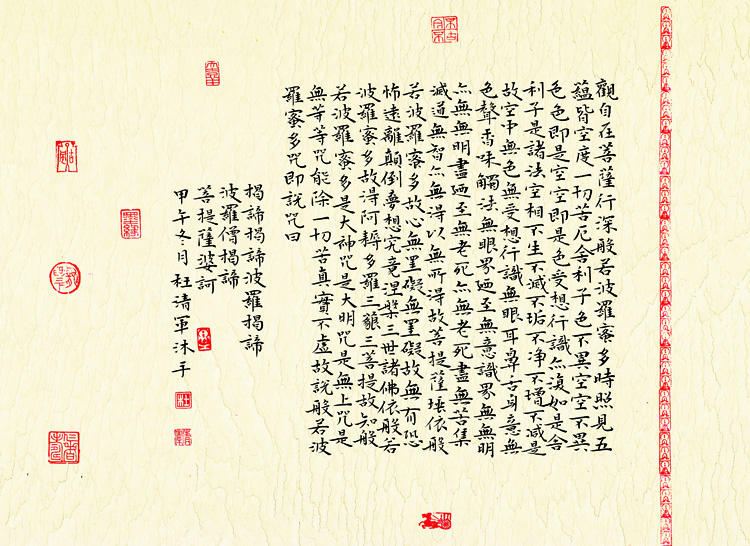 觀自在菩薩行深般若波羅蜜多時照見五
蘊皆空度一切苦厄舍利子色不異空空不異
色色即是空空即是色受想行識亦復如是舍
利子是諸法空相不生不滅不垢不净不增不減是
故空中無色無受想行識無眼耳鼻舌身意無
色聲香味觸法無眼界迺至無意識界無無明
亦無無明盡迺至無老死亦無老死盡無苦集
滅道無智亦無得以無所得故菩提薩埵依般
若波羅蜜多故心無罣礙無罣礙故無有恐
怖遠離顛倒夢想究竟涅槃三世諸佛依般若
波羅蜜多故得阿耨多羅三藐三菩提故知般
若波羅蜜多是大神咒是大明咒是無上咒是
無等等咒能除一切苦真實不虛故說般若波
羅蜜多咒即說咒曰
揭諦揭諦波羅揭諦
波羅僧揭諦
菩提薩婆訶
甲午冬月杜清軍沐手